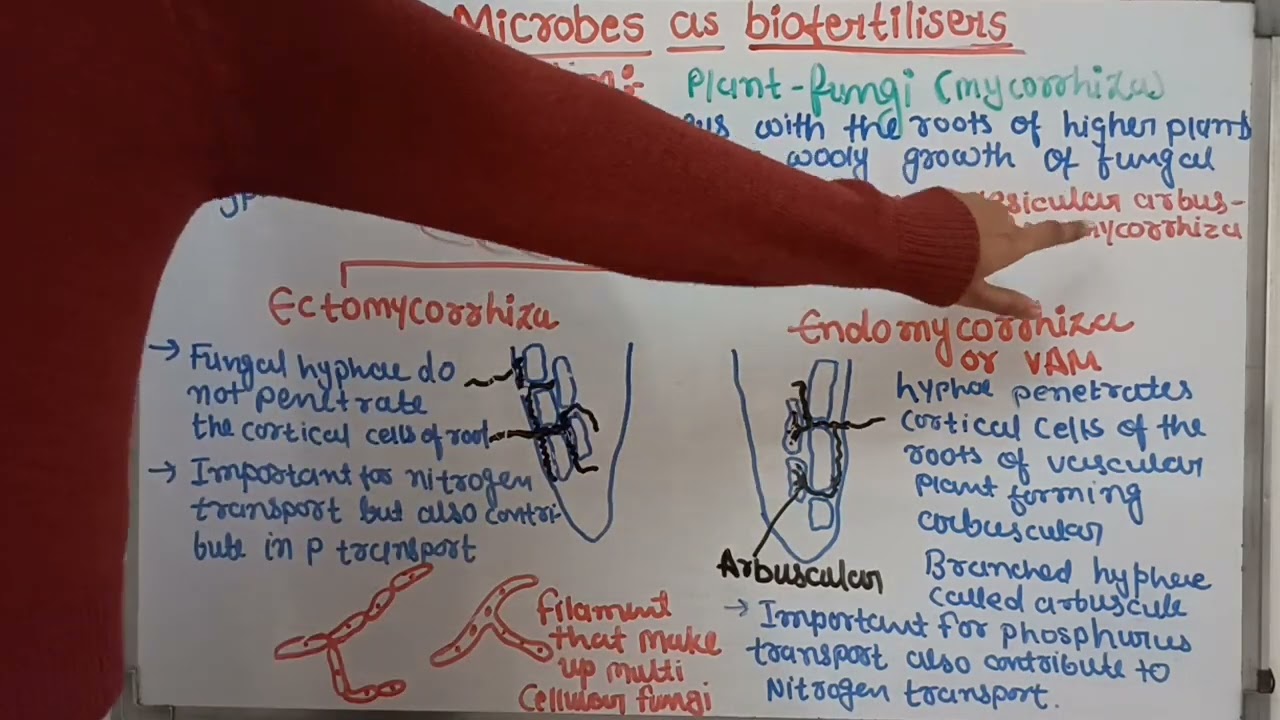 Microbes as biofertilisers
Plant-fungi (mycorrhiza)
with the roots of higher plants
wooly growth of fungal
arbus-
mycorrhiza
Ectomycorrhiza
→ Fungal hyphae do
not penetrate
the cortical cells of root
→ Important for nitrogen
transport but also contri-
bute in P transport
filament
that make
up multi
cellular fungi
Endomycorrhiza
or VAM
hyphae penetrates
cortical cells of the
roots of vascular
plant forming
Arbuscular
Branched hyphae
called arbuscule
→ Important for phosphurus
transport also contribute to
Nitrogen transport.